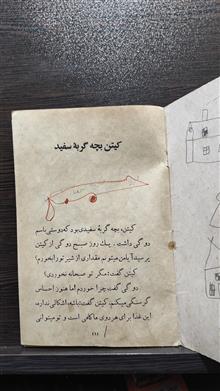 کیتن بچه گربهٔ سفید
کیتن، بچه گربهٔ سفیدی بود که دوستی باسم
دوگی داشت. یک روز صبح دوگی از کیتن
پرسید آیا من میتونم مقداری از شیر تورا بخورم؟
کیتن گفت: مگر تو صبحانه نخوردی؟
دوگی گفت چرا خوردم اما هنوز احساس
گرسنگی میکنم. کیتن گفت: باشه، اشکالی نداره،
این غذا برای هر دوی ما کافی است و تو میتوانی